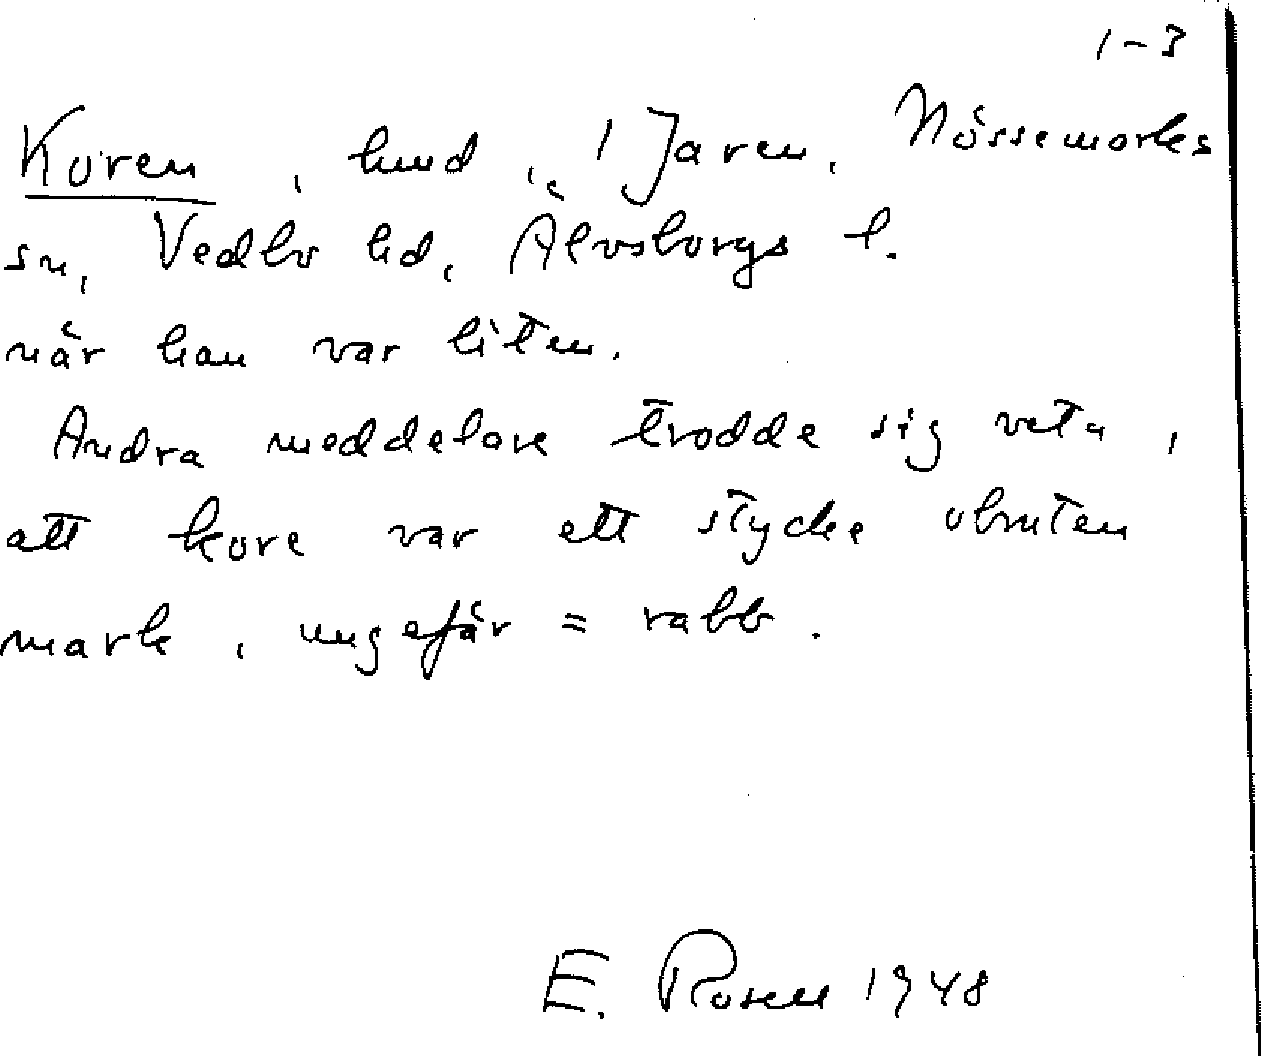 1-3
Koren, hmd, 1 Jaren, Nössemarks
sn, Vedbo hd, Älvsborgs l.
när han var liten.
Andra meddelare trodde sig veta,
att kore var ett stycke obruten
mark, ungefär = rabb.
E. Rosell 1948